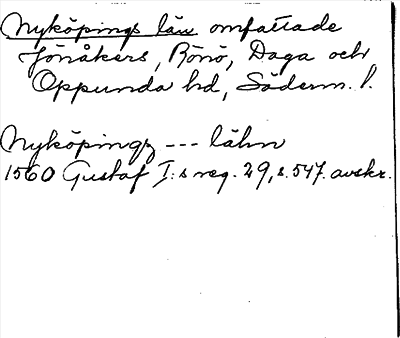 Nyköpings län omfattade
Jönåkers, Rönö, Daga och
Oppunda hd, Söderm. l.
Nyköpingz --- lähn
1560 Gustaf I:s reg. 29, s. 547. avskr.